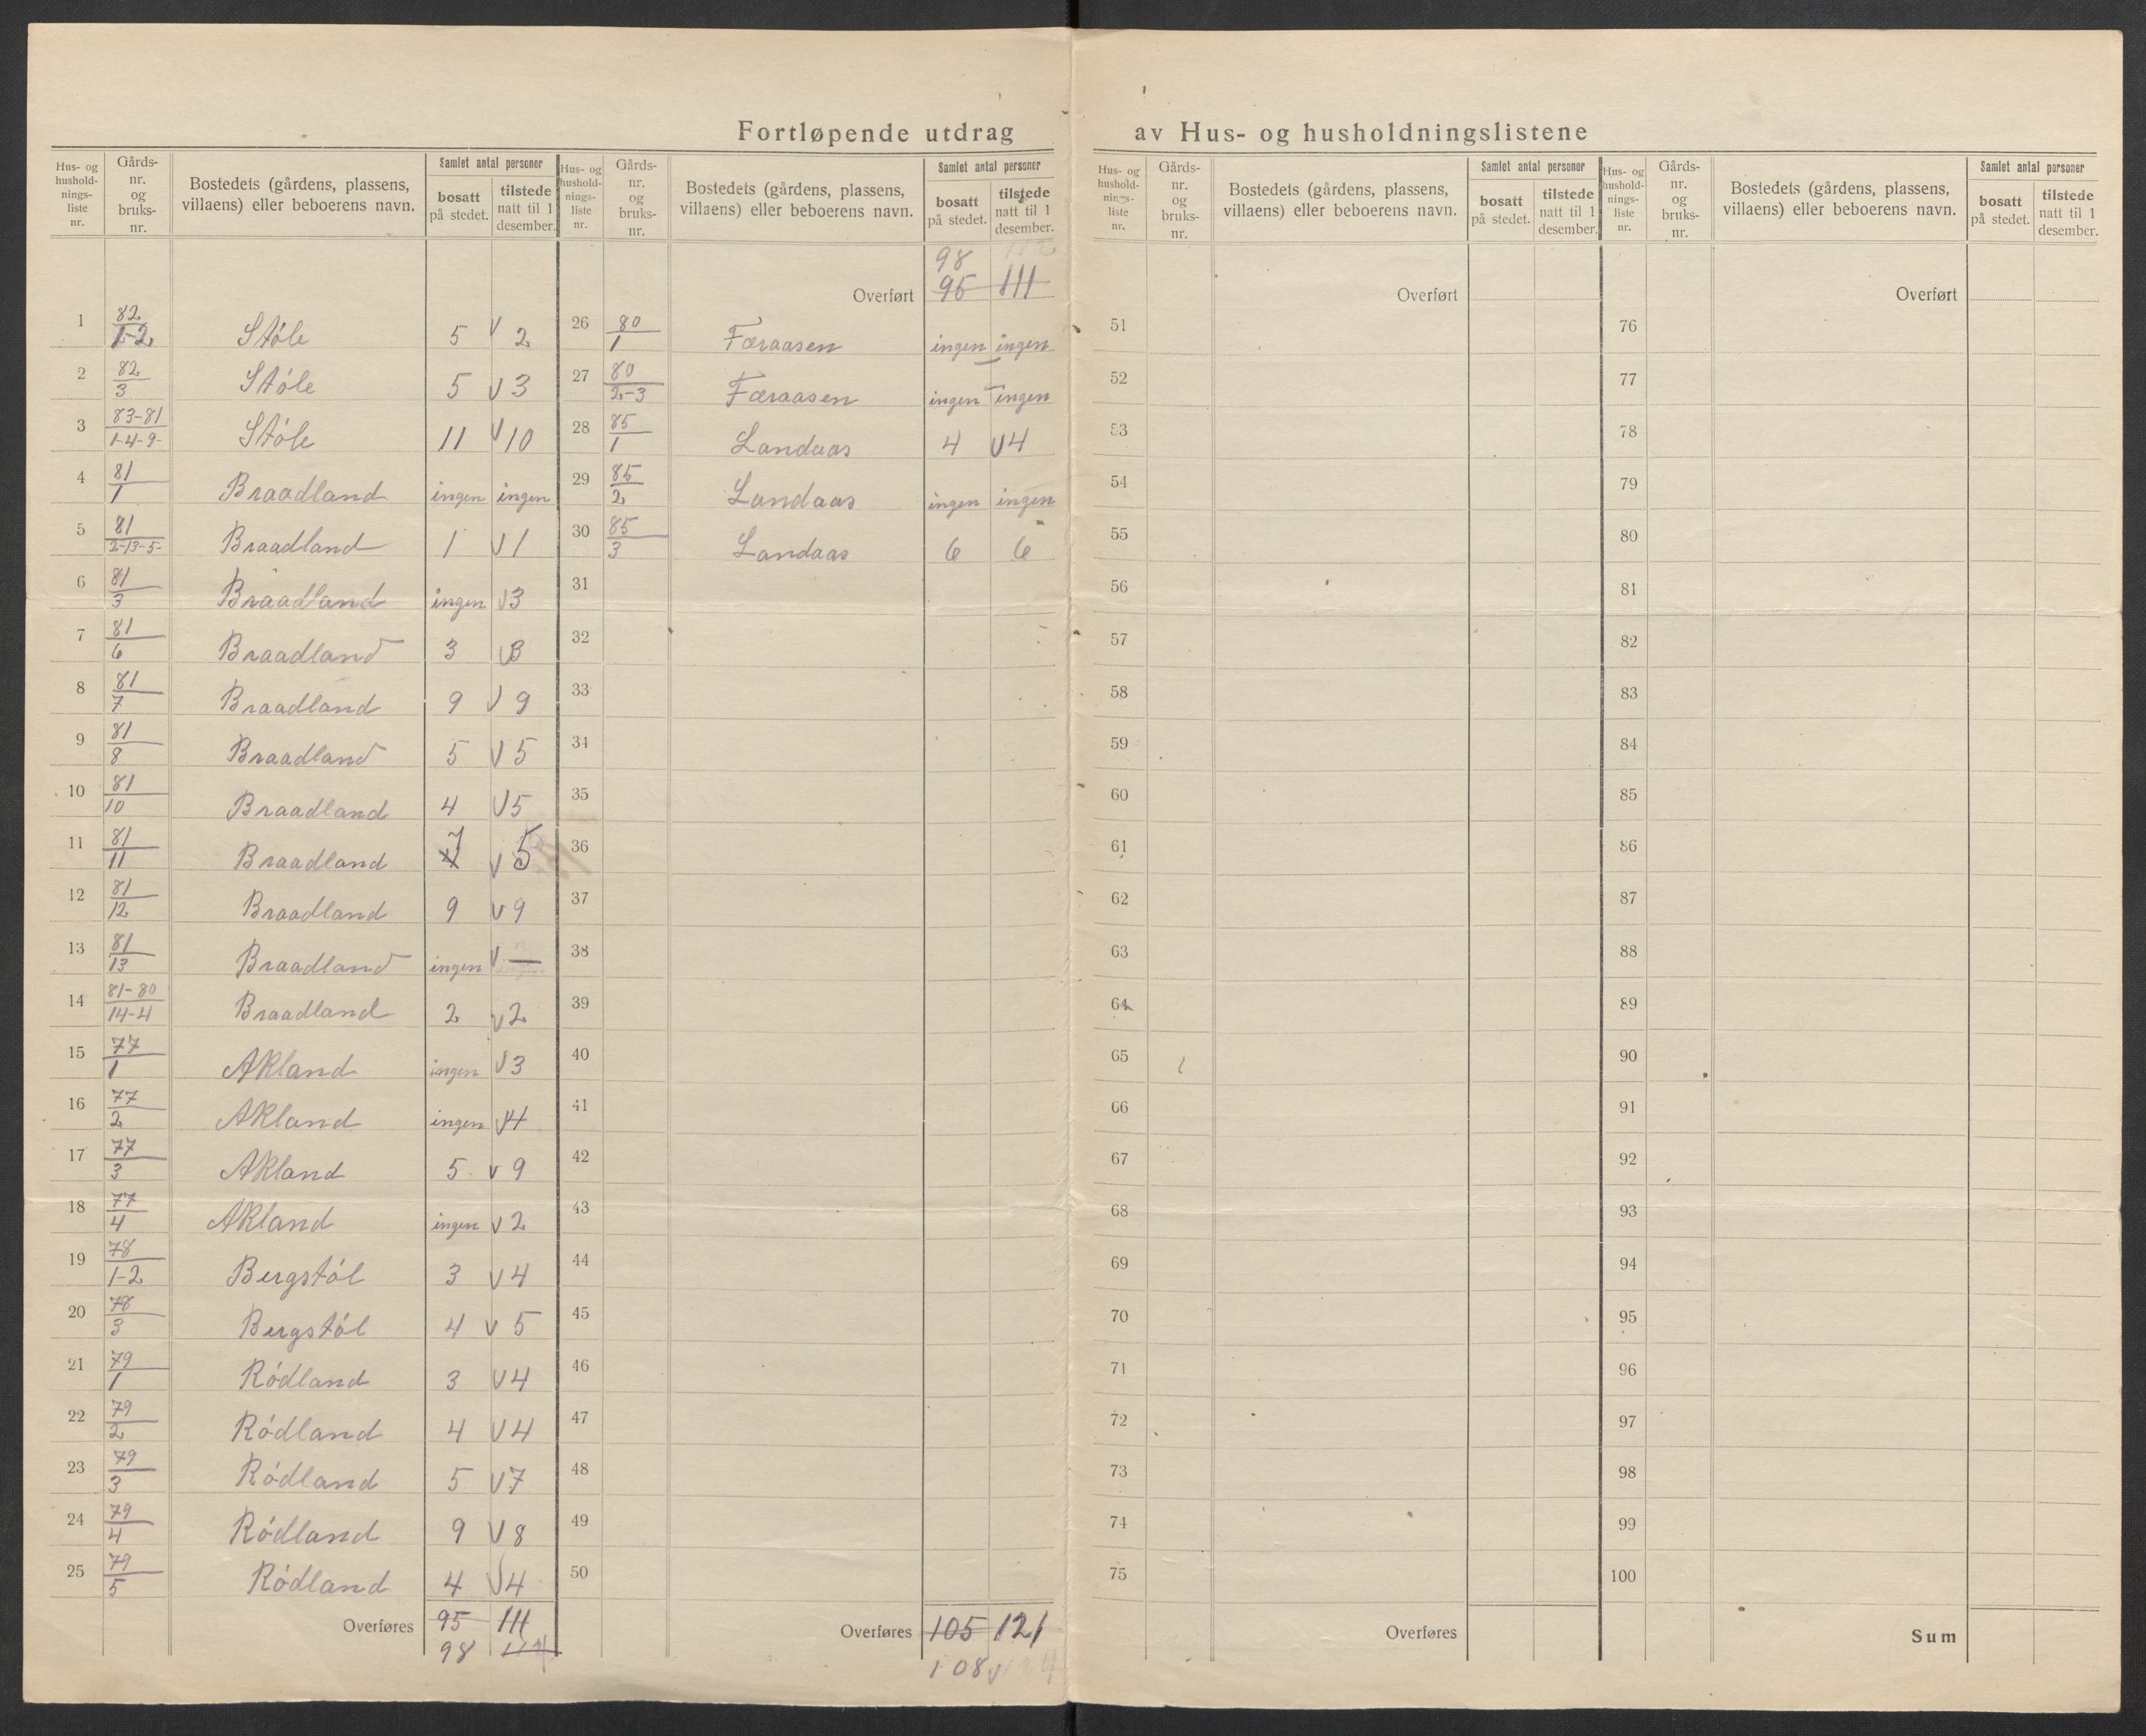 Fortløpende utdrag av Hus- og husholdningslistene
Hus- og hushold-nings-liste nr. Gårds-nr. og bruks-nr. Bostedets (gårdens, plassens, villaens) eller beboerens navn. Samlet antal personer bosatt på stedet. tilstede natt til 1 desember.
1 82/1-2 Støle 5 v 2
2 82/3 Støle 5 v 3
3 83-81/1-4-9- Støle 11 v 10
4 81/1 Braadland ingen ingen
5 81/2-13-5- Braadland 1 v 1
6 81/3 Braadland ingen v 3
7 81/6 Braadland 3 v 3
8 81/7 Braadland 9 v 9
9 81/8 Braadland 5 v 5
10 81/10 Braadland 4 v 5
11 81/11 Braadland 7 v 5
12 81/12 Braadland 9 v 9
13 81/13 Braadland ingen v —
14 81-80/14-4 Braadland 2 v 2
15 77/1 Akland ingen v 3
16 77/2 Akland ingen v 4
17 77/3 Akland 5 v 9
18 77/4 Akland ingen v 2
19 78/1-2 Bergstøl 3 v 4
20 78/3 Bergstøl 4 v 5
21 79/1 Rødland 3 v 4
22 79/2 Rødland 4 v 4
23 79/3 Rødland 5 v 7
24 79/4 Rødland 9 v 8
25 79/5 Rødland 4 v 4
Overføres 95 111
98
Hus- og hushold-nings-liste nr. Gårds-nr. og bruks-nr. Bostedets (gårdens, plassens, villaens) eller beboerens navn. Samlet antal personer bosatt på stedet. tilstede natt til 1 desember.
98
Overført 95 111
26 80/1 Færaasen ingen ingen
27 80/2-3 Færaasen ingen ingen
28 85/1 Landaas 4 v 4
29 85/2 Landaas ingen ingen
30 85/3 Landaas 6 6
31
32
33
34
35
36
37
38
39
40
41
42
43
44
45
46
47
48
49
50
Overføres 105 121
108 v 124
Hus- og hushold-nings-liste nr. Gårds-nr. og bruks-nr. Bostedets (gårdens, plassens, villaens) eller beboerens navn. Samlet antal personer bosatt på stedet. tilstede natt til 1 desember.
Overført
51
52
53
54
55
56
57
58
59
60
61
62
63
64
65
66
67
68
69
70
71
72
73
74
75
Overføres
Hus- og hushold-nings-liste nr. Gårds-nr. og bruks-nr. Bostedets (gårdens, plassens, villaens) eller beboerens navn. Samlet antal personer bosatt på stedet. tilstede natt til 1 desember.
Overført
76
77
78
79
80
81
82
83
84
85
86
87
88
89
90
91
92
93
94
95
96
97
98
99
100
Sum